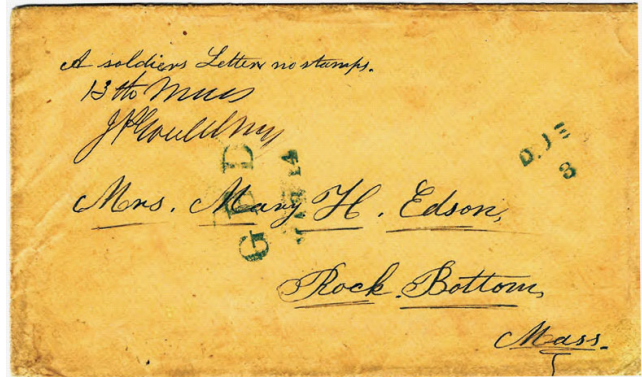 A soldiers Letter no stamps.
13th Mass
J P Gould Maj
DUE
3
Mrs. Mary H. Edson,
Rock Bottom,
Mass.